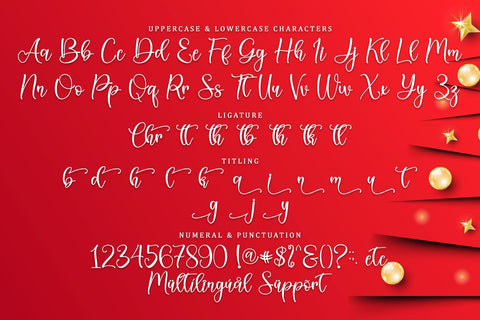 UPPERCASE & LOWERCASE CHARACTERS
Aa Bb Cc Dd Ee Ff Gg Hh Ii Jj Kk Ll Mm
Nn Oo Pp Qq Rr Ss Tt Uu Vv Ww Xx Yy Zz
LIGATURE
Chr tt th tb th tk tl
TITLING
b d h t l k a i n m u t
g j y
NUMERAL & PUNCTUATION
1234567890 !@#$%^&()?:;. etc
Maltilinguál Sùpport